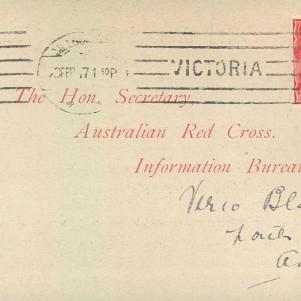 VICTORIA
The Hon. Secretary,
Australian Red Cross.
Information Burea
Verco Bl